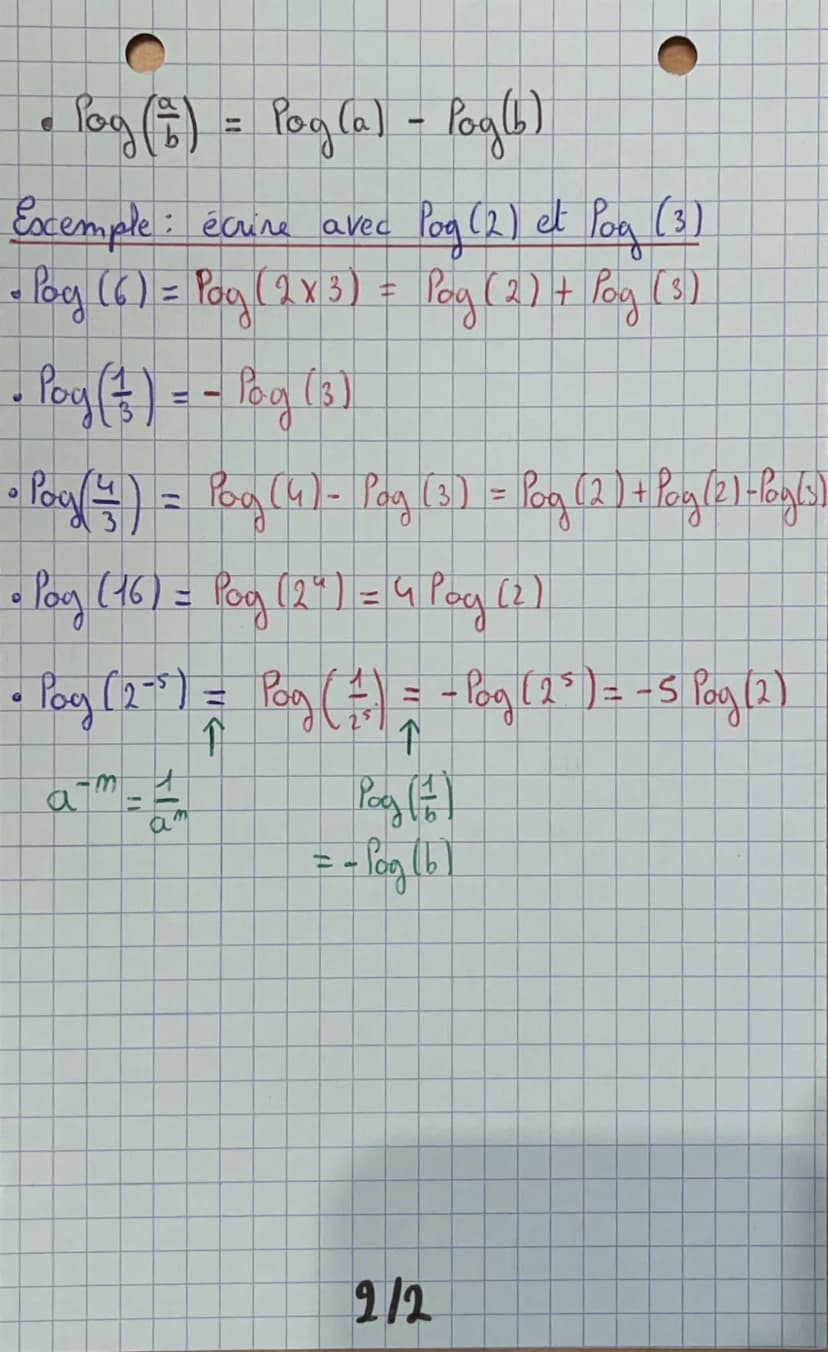 • log(a/b) = log(a) - log(b)
Exemple : écrire avec log(2) et log(3)
• log(6) = log(2x3) = log(2) + log(3)
• log(1/3) = - log(3)
• log(4/3) = log(4) - log(3) = log(2) + log(2) - log(3)
• log(16) = log(2⁴) = 4 log(2)
• log(2⁻⁵) = log(1/2⁵) = - log(2⁵) = -5 log(2)
↑ ↑
a⁻ⁿ = 1/aⁿ log(1/b)
= - log(b)
2/2